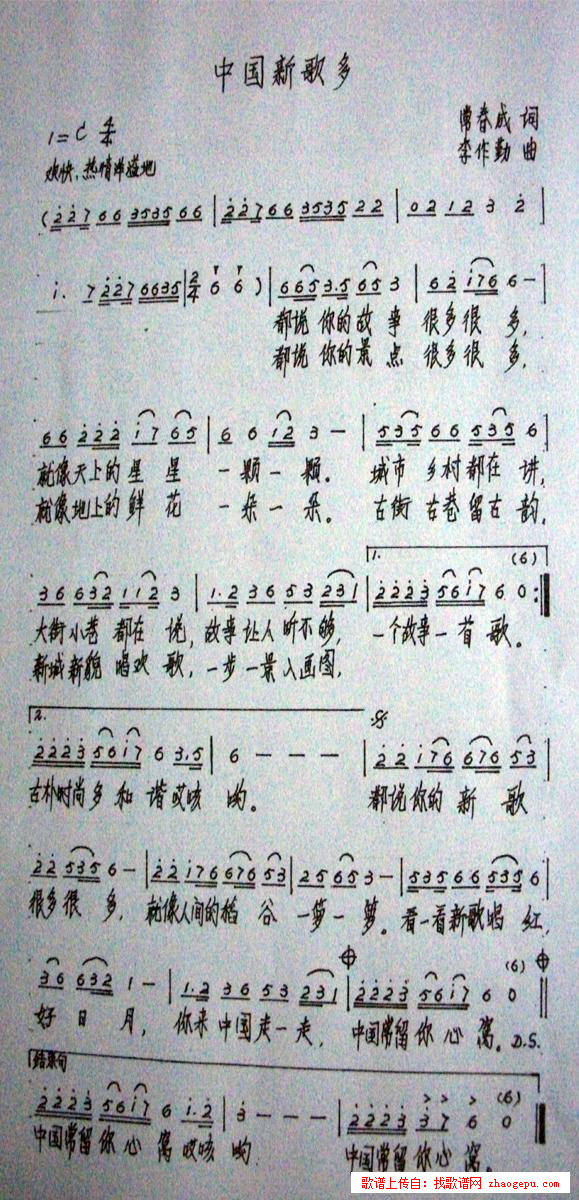 中国新歌多
1=C 4/4
常春成 词
李作勤 曲
欢快、热情洋溢地
(2 2 7 6 6 3 5 3 5 6 6 | 2 2 7 6 6 3 5 3 5 2 2 | 0 2 1 2 3 2 |
1. 7 2 2 7 6 6 3 5 | 2/4 6 6 ) | 6 6 5 3.5 6 5 3 | 6 2 1 7 6 6 – |
都说你的故事 很多很多,
都说你的景点 很多很多,
6 6 2 2 2 1 7 6 5 | 6 6 1 2 3 – | 5 3 5 6 6 5 3 5 6 |
就像天上的星星 一颗一颗。 城市 乡村都在 讲,
就像地上的鲜花 一朵一朵。 古街 古巷留古 韵,
1. (6)
3 6 6 3 2 1 1 2 3 | 1.2 3 6 5 3 2 3 1 | 2 2 2 3 5 6 1 7 6 0 :||
大街小巷 都在 说, 故事让人听不够, 一个故事一首 歌。
新城新貌 唱欢 歌, 一步一景入画图,
2. 𝄋
2 2 2 3 5 6 1 7 6 3.5 | 6 – – – | 2 2 1 7 6 6 7 6 5 3 |
古朴时尚多和 谐哎咳 哟。 都说你的 新 歌
2 2 5 3 5 6 – | 2 2 1 7 6 6 7 6 5 3 | 2 5 6 5 3 – | 5 3 5 6 6 5 3 5 6 |
很多很 多, 就像人间的稻 谷 一箩一箩。看一看新歌唱 红,
(6)
3 6 6 3 2 1 – | 1.2 3 6 5 3 2 3 1 | 2 2 2 3 5 6 1 7 6 0 ||
好 日 月, 你来中国走一走, 中国常留你心 窝。D.S.
结束句 (6)
2 2 2 3 5 6 1 7 6 1.2 | 3 – – – | 2 2 2 3 3 7 6 0 ||
中国常留你心 窝 哎咳 哟 中国常留你心 窝。
歌谱上传自:找歌谱网 zhaogepu.com